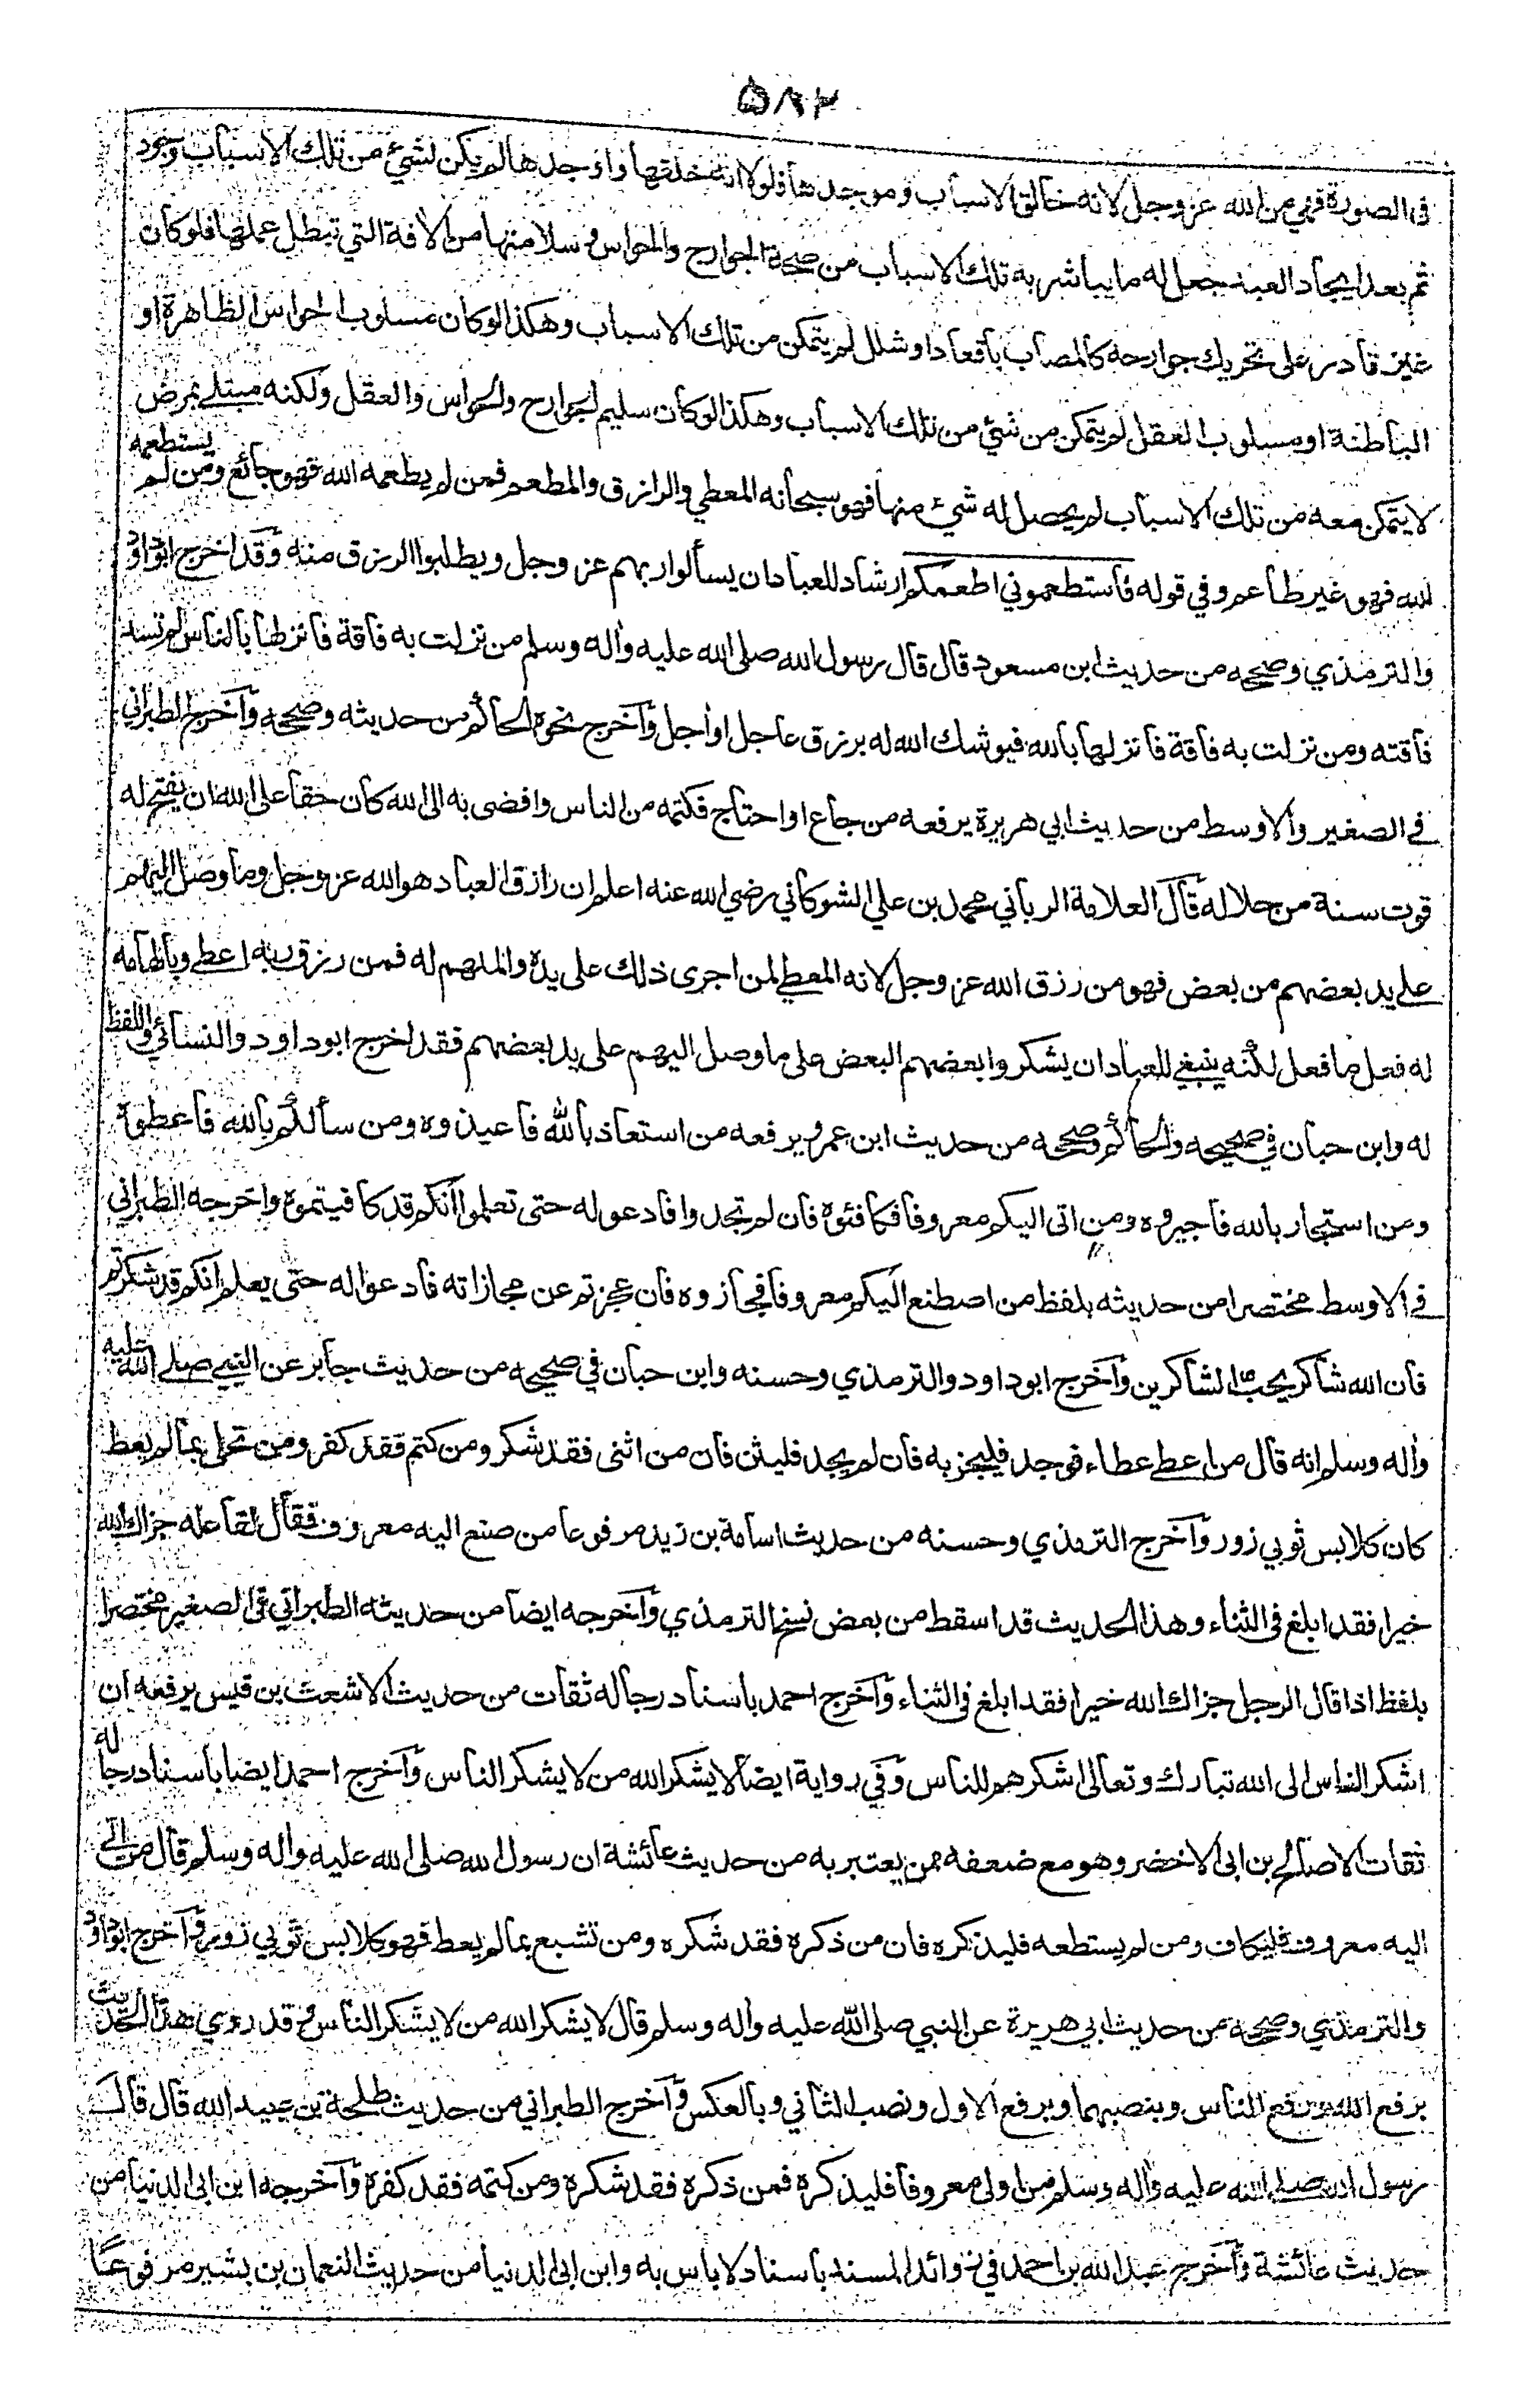 ٥٨٢
فى الصورة فهي من الله عز وجل لانه خالق الاسباب وموجدها فلولا انه خلقها واوجدها لم يكن لشيء من تلك الاسباب وجود
ثم بعد ايجاد العبد جعل له ما يباشر به تلك الاسباب من صحة الجوارح والحواس وسلامتها من الافة التي تبطل عملها فلو كان
غير قادر على تحريك جوارحه كالمصاب باقعاد او شلل لم يتمكن من تلك الاسباب وهكذا لو كان مسلوب الحواس الظاهرة او
الباطنة او مسلوب العقل لم يتمكن من شيء من تلك الاسباب وهكذا لو كان سليم الجوارح والحواس والعقل ولكنه مبتلے بمرض
لا يتمكن معه من تلك الاسباب لم يحصل له شيء منها فهو سبحانه المعطي والرازق والمطعم فمن لم يطعمه الله فهو جائع ومن لم يستطعمه
الله فهو غير طاعم وفي قوله فاستطعموني اطعمكم ارشاد للعباد ان يسألوا ربهم عز وجل ويطلبوا الرزق منه وقد اخرج ابو داود
والترمذي وصححه من حديث ابن مسعود قال قال رسول الله صلى الله عليه واله وسلم من نزلت به فاقة فانزلها بالناس لم تسد
فاقته ومن نزلت به فاقة فانزلها بالله فيوشك الله له برزق عاجل او اجل وآخرج نحوه الحاكم من حديثه وصححه وآخرج الطبراني
فے الصغير والاوسط من حديث ابي هريرة يرفعه من جاع او احتاج فكتمه من الناس وافضى به الى الله كان حقا على الله ان يفتح له
قوت سنة من حلاله قال العلامة الرباني محمد بن علي الشوكاني رضي الله عنه اعلم ان رازق العباد هو الله عز وجل وما وصل اليهم
علے يد بعضهم من بعض فهو من رزق الله عز وجل لانه المعطي لمن اجرى ذلك على يده والملهم له فمن رزق ربه اعطے وبالهامه
له فعل ما فعل لكنه ينبغي للعباد ان يشكروا بعضهم البعض على ما وصل اليهم على يد بعضهم فقد اخرج ابو داود والنسائي واللفظ
له وابن حبان في صحيحه والحاكم وصححه من حديث ابن عمر ويرفعه من استعاذ بالله فاعيذوه ومن سألكم بالله فاعطوه
ومن استجار بالله فاجيروه ومن اتى اليكم معروفا فكافئوه فان لم تجدوا فادعوا له حتى تعلموا انكم قد كافيتموه واخرجه الطبراني
فے الاوسط مختصرا من حديثه بلفظ من اصطنع اليكم معروفا فجازوه فان عجزتم عن مجازاته فادعوا له حتى يعلم انكم قد شكرتم
فان الله شاكر يحب الشاكرين وآخرج ابو داود والترمذي وحسنه وابن حبان في صحيحه من حديث جابر عن النبي صلے الله عليه
واله وسلم انه قال من اعطے عطاء فوجد فليجز به فان لم يجد فليثن فان من اثنى فقد شكر ومن كتم فقد كفر ومن تحلى بما لم يعط
كان كلابس ثوبي زور وآخرج الترمذي وحسنه من حديث اسامة بن زيد مرفوعا من صنع اليه معروف فقال لفاعله جزاك الله
خيرا فقد ابلغ فى الثناء وهذا الحديث قد اسقط من بعض نسخ الترمذي وآخرجه ايضا من حديثه الطبراني فى الصغير مختصرا
بلفظ اذا قال الرجل جزاك الله خيرا فقد ابلغ فى الثناء وآخرج احمد باسناد رجاله ثقات من حديث الاشعث بن قيس يرفعه ان
اشكر الناس الى الله تبارك وتعالى اشكرهم للناس وفي رواية ايضا لا يشكر الله من لا يشكر الناس وآخرج احمد ايضا باسناد رجاله
ثقات الا صالح بن ابى الاخضر وهو مع ضعفه ممن يعتبر به من حديث عائشة ان رسول الله صلى الله عليه واله وسلم قال من اتے
اليه معروف فليكاف ومن لم يستطعه فليذكره فان من ذكره فقد شكره ومن تشبع بما لم يعط فهو كلابس ثوبي زور وآخرج ابو داود
والترمذي وصححه من حديث ابي هريرة عن النبي صلى الله عليه واله وسلم قال لا يشكر الله من لا يشكر الناس وقد روي هذا الحديث
برفع الله ورفع الناس وبنصبهما وبرفع الاول ونصب الثاني وبالعكس وآخرج الطبراني من حديث طلحة بن عبيد الله قال قال
رسول الله صلے الله عليه واله وسلم من اولى معروفا فليذكره فمن ذكره فقد شكره ومن كتمه فقد كفره وآخرجه ابن ابى الدنيا من
حديث عائشة وآخرج عبد الله بن احمد في زوائد المسند باسناد لا باس به وابن ابى الدنيا من حديث النعمان بن بشير مرفوعا